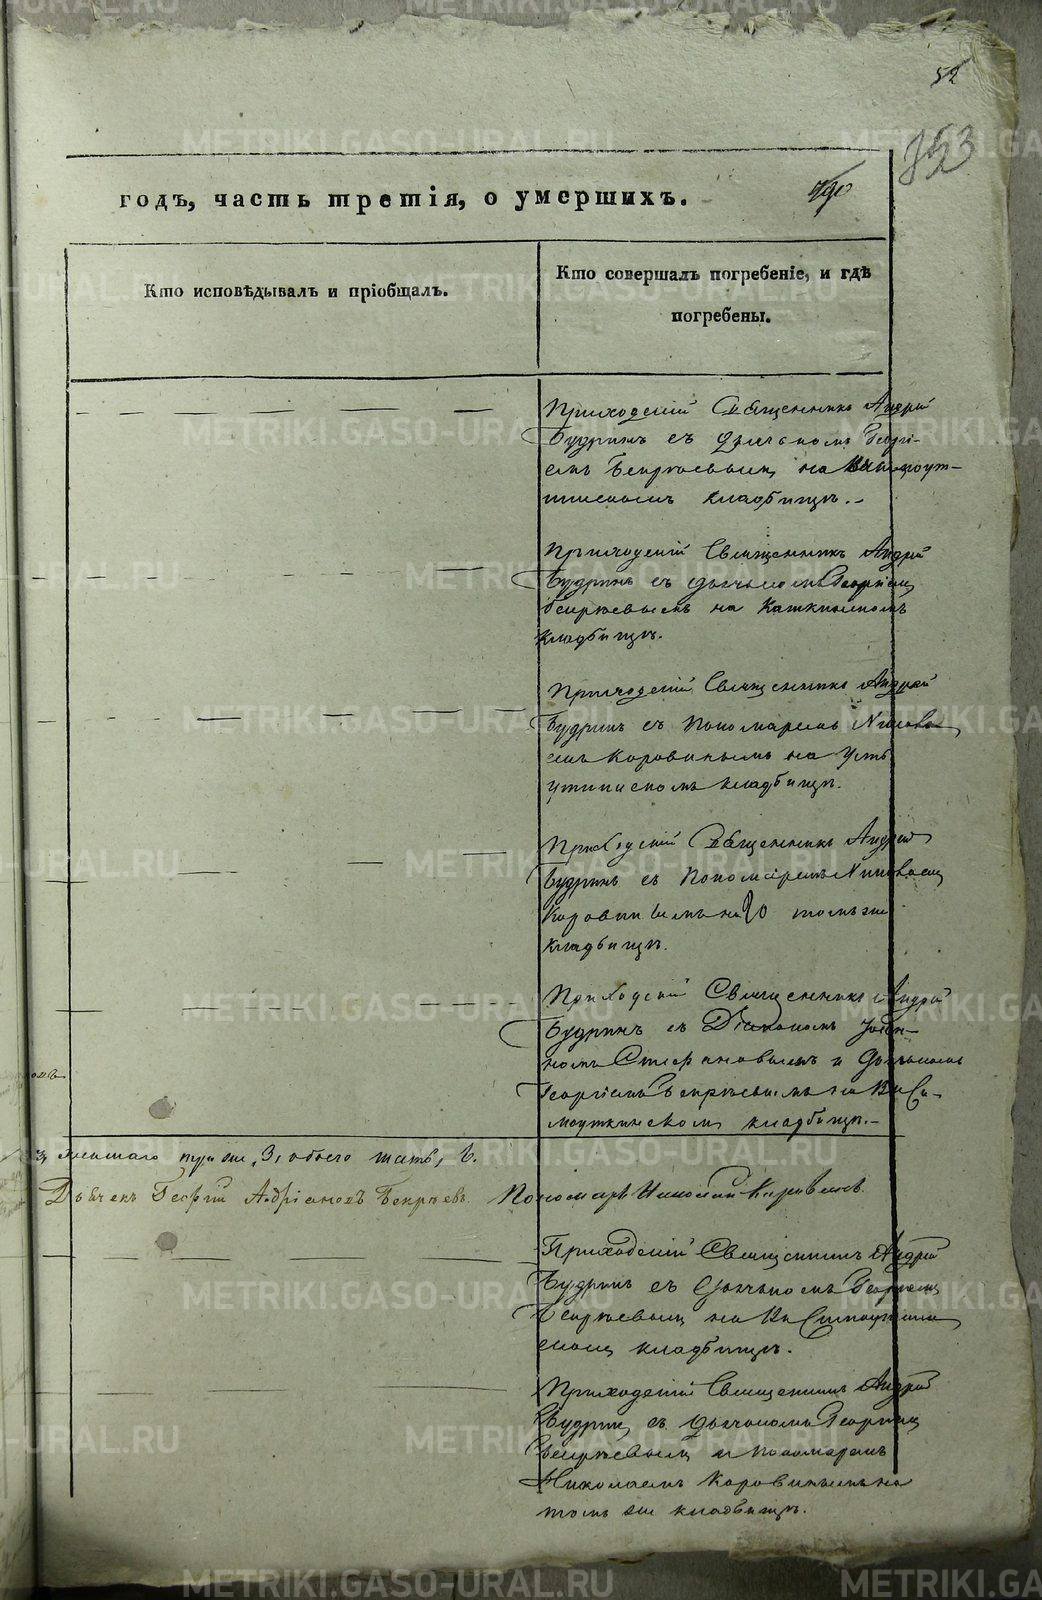 52
353
190
годъ, часть третія, о умершихъ.
Кто исповѣдывалъ и пріобщалъ.
Кто совершалъ погребеніе, и гдѣ
погребены.
Приходскій Священникъ Андрей
Будринъ съ Дьячкомъ Георгі-
емъ Бекряевымъ на
кладбищѣ.
Приходскій Священникъ Андрей
Будринъ съ дьячкомъ Георгіемъ
Бекряевымъ на
кладбищѣ.
Приходскій Священникъ Андрей
Будринъ съ Пономаремъ Никола
емъ Коровинымъ на Усть
Уткинскомъ кладбищѣ.
Приходскій Священникъ Андрей
Будринъ съ Пономаремъ Николаемъ
Коровинымъ на томъ же
кладбищѣ.
Приходскій Священникъ Андрей
Будринъ съ Діакономъ Іоан-
номъ Стефановымъ и Дьячкомъ
Георгіемъ Бекряевымъ на
кладбищѣ.
3, женскаго пола 3, обоего шесть, 6.
Дьячекъ Георгій Адріановъ Бекряевъ. Пономарь Николай Коровинъ.
Приходскій Священникъ Андрей
Будринъ съ Дьячкомъ Георгіемъ
Бекряевымъ на
скомъ кладбищѣ.
Приходскій Священникъ Андрей
Будринъ съ дьячкомъ Георгіемъ
Бекряевымъ и пономаремъ
Николаемъ Коровинымъ на
томъ же кладбищѣ.
METRIKI.GASO-URAL.RU